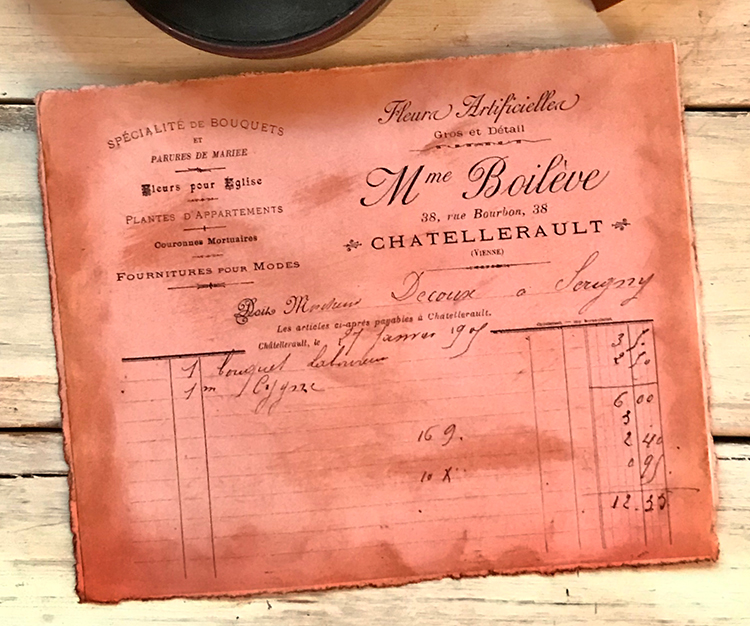 SPÉCIALITÉ DE BOUQUETS
ET
PARURES DE MARIEE
Fleurs pour Eglise
PLANTES D'APPARTEMENTS
Couronnes Mortuaires
FOURNITURES POUR MODES
Fleurs Artificielles
Gros et Détail
Mme Boilève
38, rue Bourbon, 38
CHATELLERAULT
(VIENNE)
Doit Monsieur Decoux a Serigny
Les articles ci-après payables à Chatellerault.
Châtellerault, le 27 Janvier 190
1 bouquet
1 m Cygne
6 00
3
16 9. 2 40
10 X 0 95
12.35